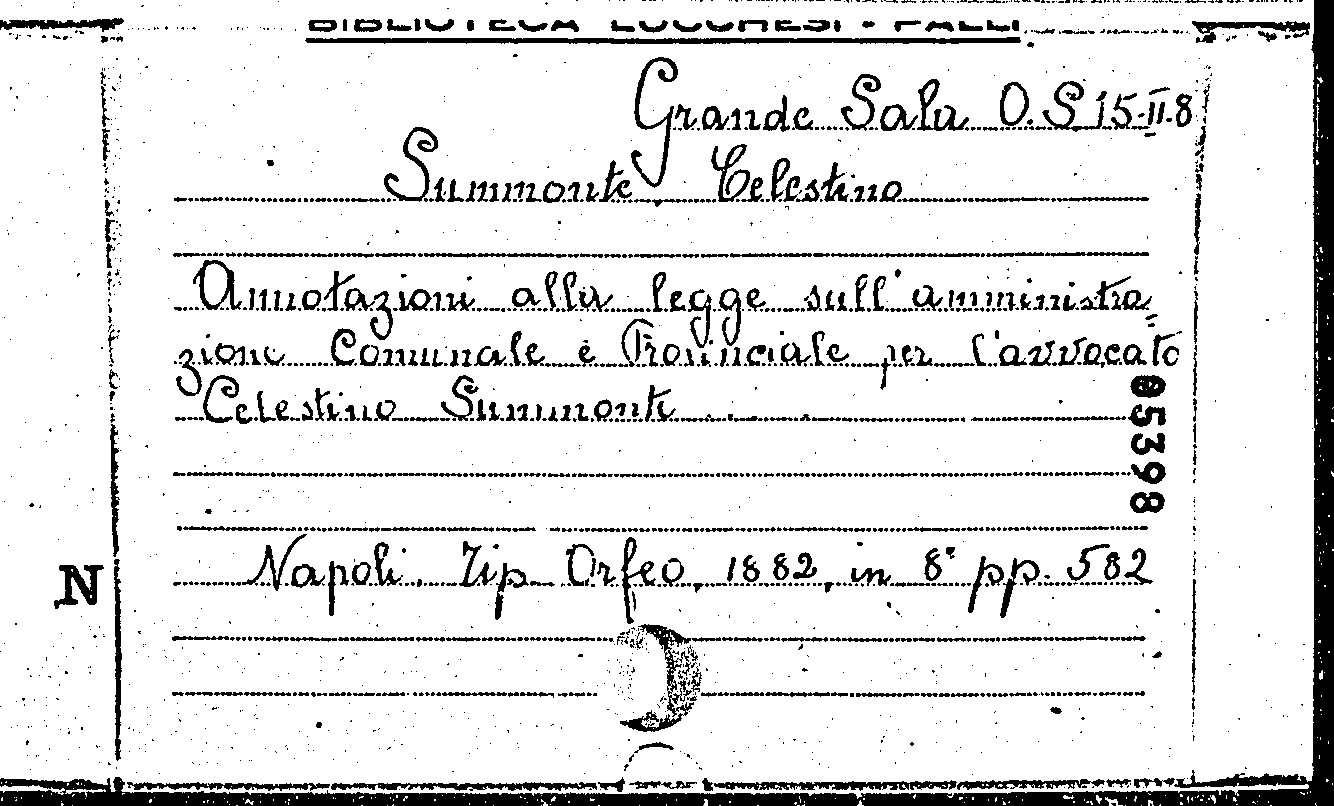 BIBLIOTECA LUCCHESI - PALLI
Grande Sala O.S. 15.II.8
Summonte Celestino
Annotazioni alla legge sull'amministra=
zione Comunale e Provinciale per l'avvocato
Celestino Summonte
05398
Napoli. Tip. Orfeo, 1882, in 8° pp. 582
N